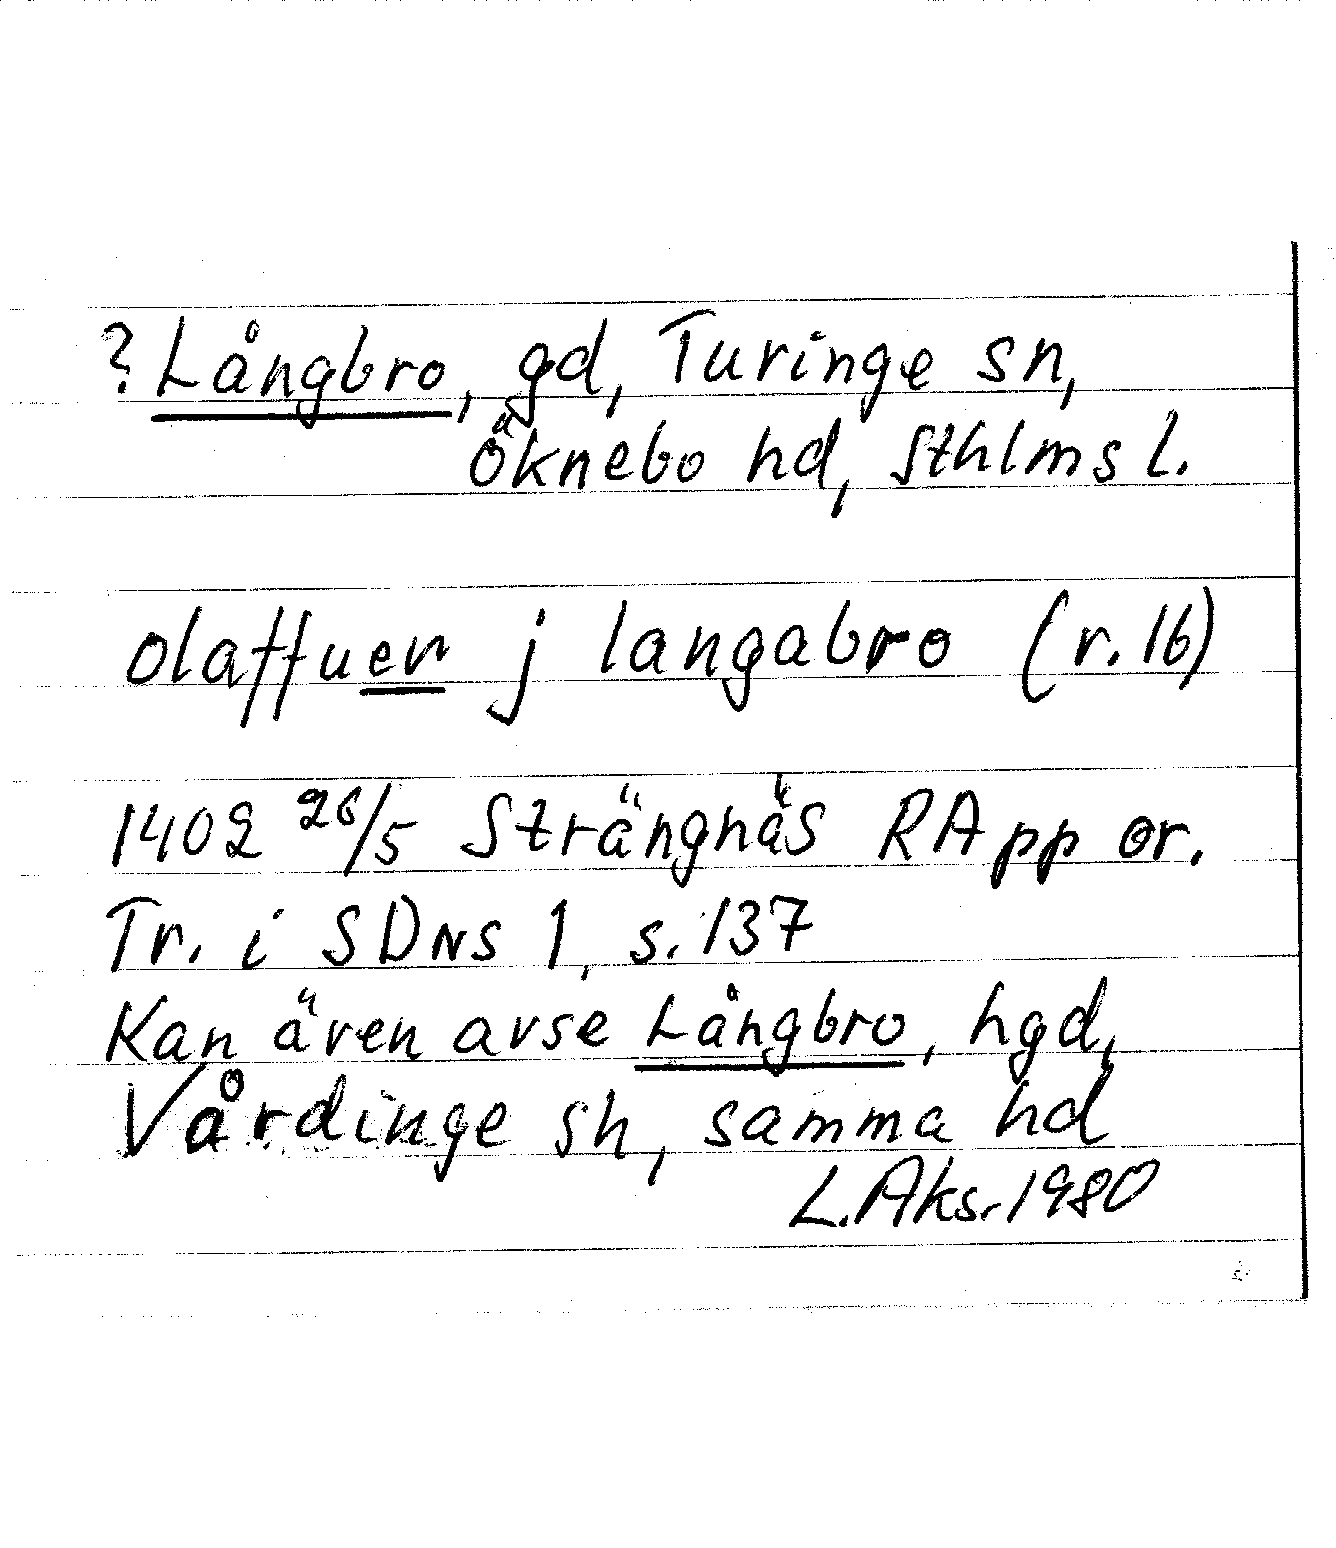 ? Långbro, gd, Turinge sn,
Öknebo hd, Sthlms l.
olaffuer j langabro (r. 16)
1402 26/5 Strängnäs RApp or.
Tr. i SDNS 1, s. 137
Kan även avse Långbro, hgd,
Vårdinge sn, samma hd
L. Aks. 1980